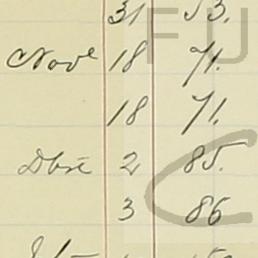 31 53.
Nove 18 71.
18 71.
Dbre 2 85.
3 86